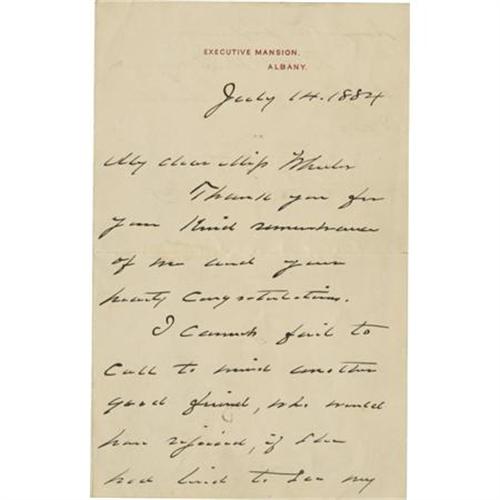 EXECUTIVE MANSION.
ALBANY.
July 14. 1884
My dear Miss Wheeler
Thank you for
your kind remembrance
of me and your
hearty congratulations.
I cannot fail to
call to mind another
good friend, who would
have rejoiced, if she
had lived to see my